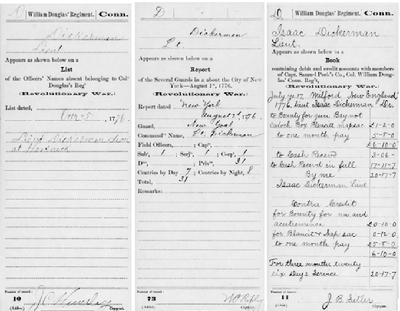 D | William Douglas' Regiment. | Conn.
Dickerman
Lieut
Appears as shown below in a
List
of the Officers' Names absent belonging to Col
Douglas's Reg
(Revolutionary War.)
List dated,
1776.
Lieut Dickerman
at
Number of record:
10
Copyist.
D
Dickerman
Lt
Appears as shown below in a
Report
of the Several Guards in & about the City of New
York—August 1st, 1776.
(Revolutionary War.)
New York
Report dated August 1st, 1776.
Guard,
Command' Name, Lt. Dickerman
Field Officers, ; Cap',
Sub', 1 ; Serj', 1 ; Corp', 1
D', ; Priv', 31
Countries by Day, ; Countries by Night,
Total, 31
Remarks:
Number of record:
73
Copyist.
D | William Douglas' Regiment. | Conn.
Isaac Dickerman
Lieut.
Appears as shown below in a
Book
containing debits and credits accounts with members
of Capt. Samuel Peck's Co., Col. William Doug-
las' Conn. Reg't,
(Revolutionary War.)
July ye 17, Milford New England
1776 Lieut Isaac Dickerman Dr.
to Bounty for gun Baynot
£1-2-0
to one month pay 5-8-0
£6-10-0
to Cash Recevd 3-06-
to Cash Recevd in full 17-7-11
By me 20-17-7
Isaac Dickerman Lieut
Contra Credit
for Bounty for
£0-10-0
for Blancit & Nap sac 0-12-0
to one month pay £5-8-0
6-10-0
For three months twenty
six Days Service 20-17-7
Number of record:
11
Copyist.